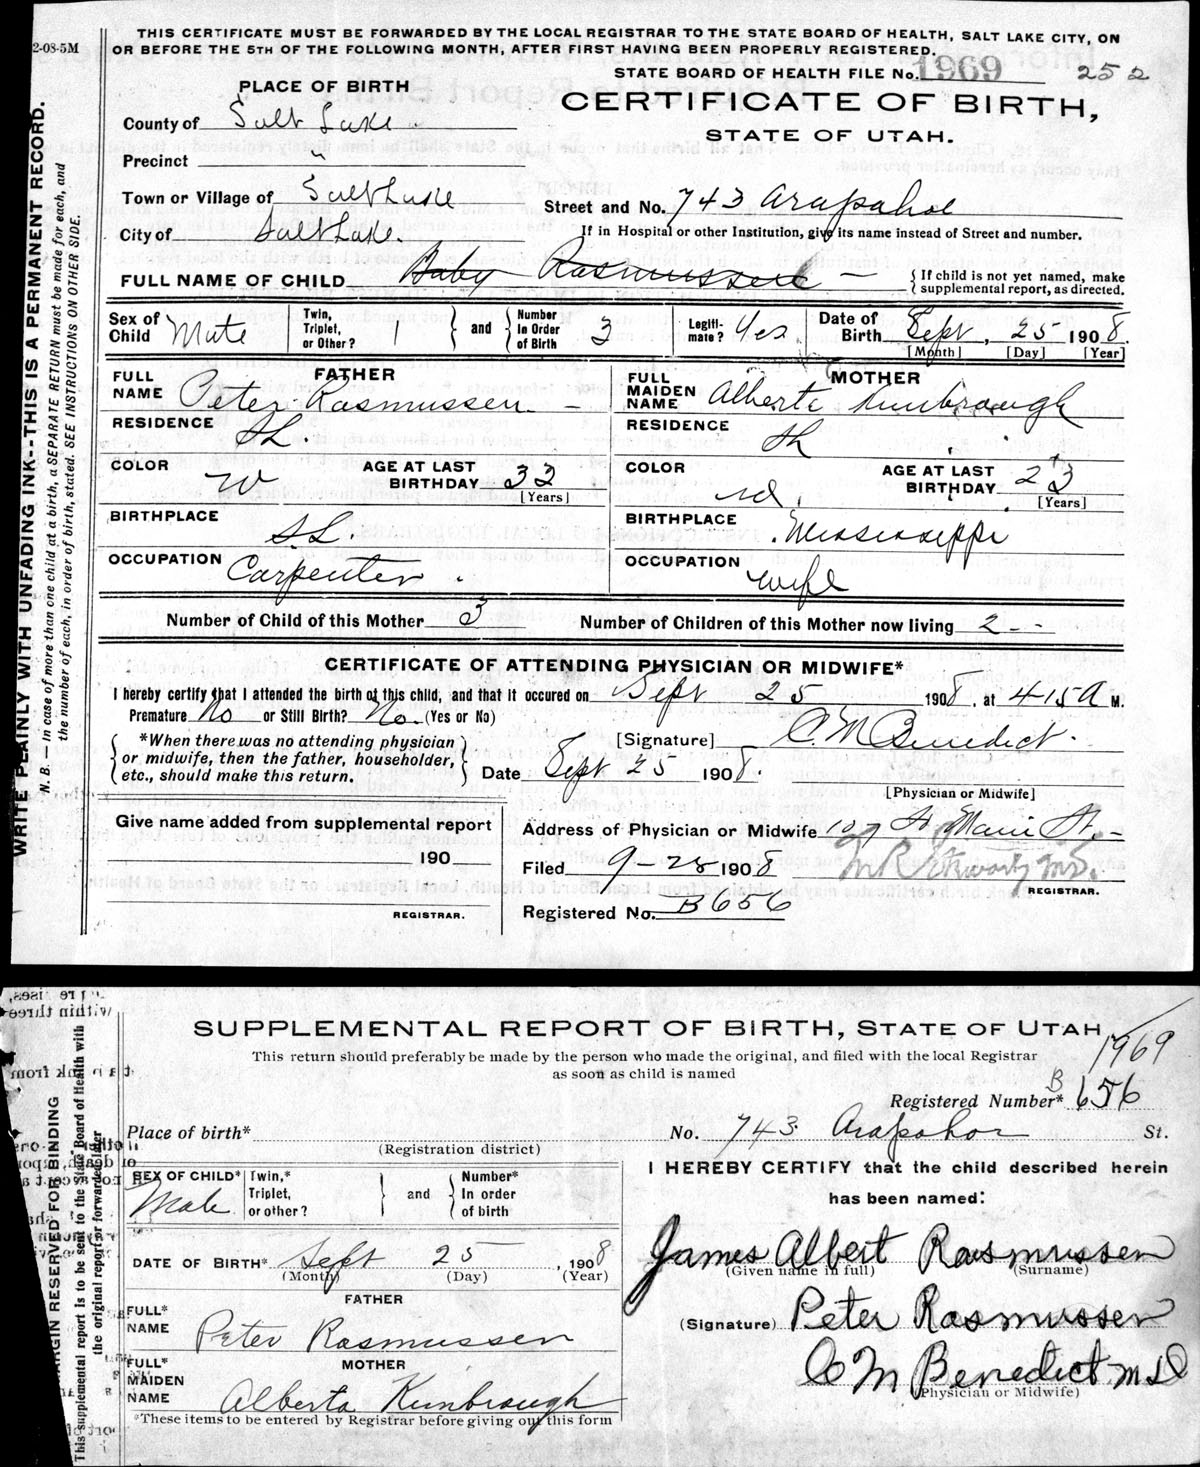 2-08-5M
THIS CERTIFICATE MUST BE FORWARDED BY THE LOCAL REGISTRAR TO THE STATE BOARD OF HEALTH, SALT LAKE CITY, ON
OR BEFORE THE 5TH OF THE FOLLOWING MONTH, AFTER FIRST HAVING BEEN PROPERLY REGISTERED.
STATE BOARD OF HEALTH FILE No. 1969 252
PLACE OF BIRTH
CERTIFICATE OF BIRTH,
STATE OF UTAH.
County of Salt Lake
Precinct "
Town or Village of Salt Lake
Street and No. 743 Arapahoe
If in Hospital or other Institution, give its name instead of Street and number.
City of Salt Lake.
FULL NAME OF CHILD Baby Rasmussen
{ If child is not yet named, make
supplemental report, as directed.
Sex of Child Male
Twin, Triplet, or Other? 1 } and { Number In Order of Birth 3
Legiti-mate? Yes
Date of Birth Sept, 25 1908.
[Month] [Day] [Year]
FATHER
FULL NAME Peter Rasmussen
RESIDENCE S L.
COLOR W
AGE AT LAST BIRTHDAY 32
[Years]
BIRTHPLACE S.L.
OCCUPATION Carpenter
MOTHER
FULL MAIDEN NAME Alberta Kimbrough
RESIDENCE
COLOR
AGE AT LAST BIRTHDAY 23
[Years]
BIRTHPLACE Mississippi
OCCUPATION Wife
Number of Child of this Mother 3
Number of Children of this Mother now living 2 - -
CERTIFICATE OF ATTENDING PHYSICIAN OR MIDWIFE*
I hereby certify that I attended the birth of this child, and that it occured on Sept 25 1908, at 415 A M.
Premature No or Still Birth? No. (Yes or No)
{ *When there was no attending physician
or midwife, then the father, householder,
etc., should make this return. }
[Signature] C. M Benedict.
Date Sept 25 1908.
[Physician or Midwife]
Give name added from supplemental report
190
REGISTRAR.
Address of Physician or Midwife 107 Main St.
Filed 9-28 1908
M.D.
REGISTRAR.
Registered No. B656
WRITE PLAINLY WITH UNFADING INK--THIS IS A PERMANENT RECORD.
N. B. — In case of more than one child at a birth, a SEPARATE RETURN must be made for each, and
the number of each, in order of birth, stated. SEE INSTRUCTIONS ON OTHER SIDE.
SUPPLEMENTAL REPORT OF BIRTH, STATE OF UTAH
1969
This return should preferably be made by the person who made the original, and filed with the local Registrar
as soon as child is named
Registered Number* B 656
Place of birth*
(Registration district)
No. 743 Arapahoe St.
SEX OF CHILD* Male
Twin,* Triplet, or other? } and { Number* In order of birth
I HEREBY CERTIFY that the child described herein
has been named:
James Albert Rasmussen
(Given name in full) (Surname)
DATE OF BIRTH* Sept 25, 1908
(Month) (Day) (Year)
FATHER
FULL* NAME Peter Rasmussen
(Signature) Peter Rasmussen
MOTHER
FULL* MAIDEN NAME Alberta Kimbrough
C M Benedict MD
(Physician or Midwife)
*These items to be entered by Registrar before giving out this form
MARGIN RESERVED FOR BINDING
This supplemental report is to be sent to the State Board of Health with
the original report or forwarded later